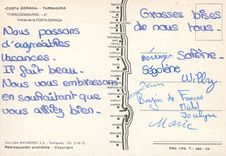 «COSTA DORADA» - TARRAGONA
TORREDEMBARRA
Vistas de la COSTA DORADA
Nous passons
d'agréables
vacances.
Il fait beau.
Nous vous embrassons
en souhaitant que
vous alliez bien.
Reproducción prohibida - Copyright
Grosses bises
de nous tous.
Solène
Ségolène
Willy
Jean
Michel
Jocelyne
Marie